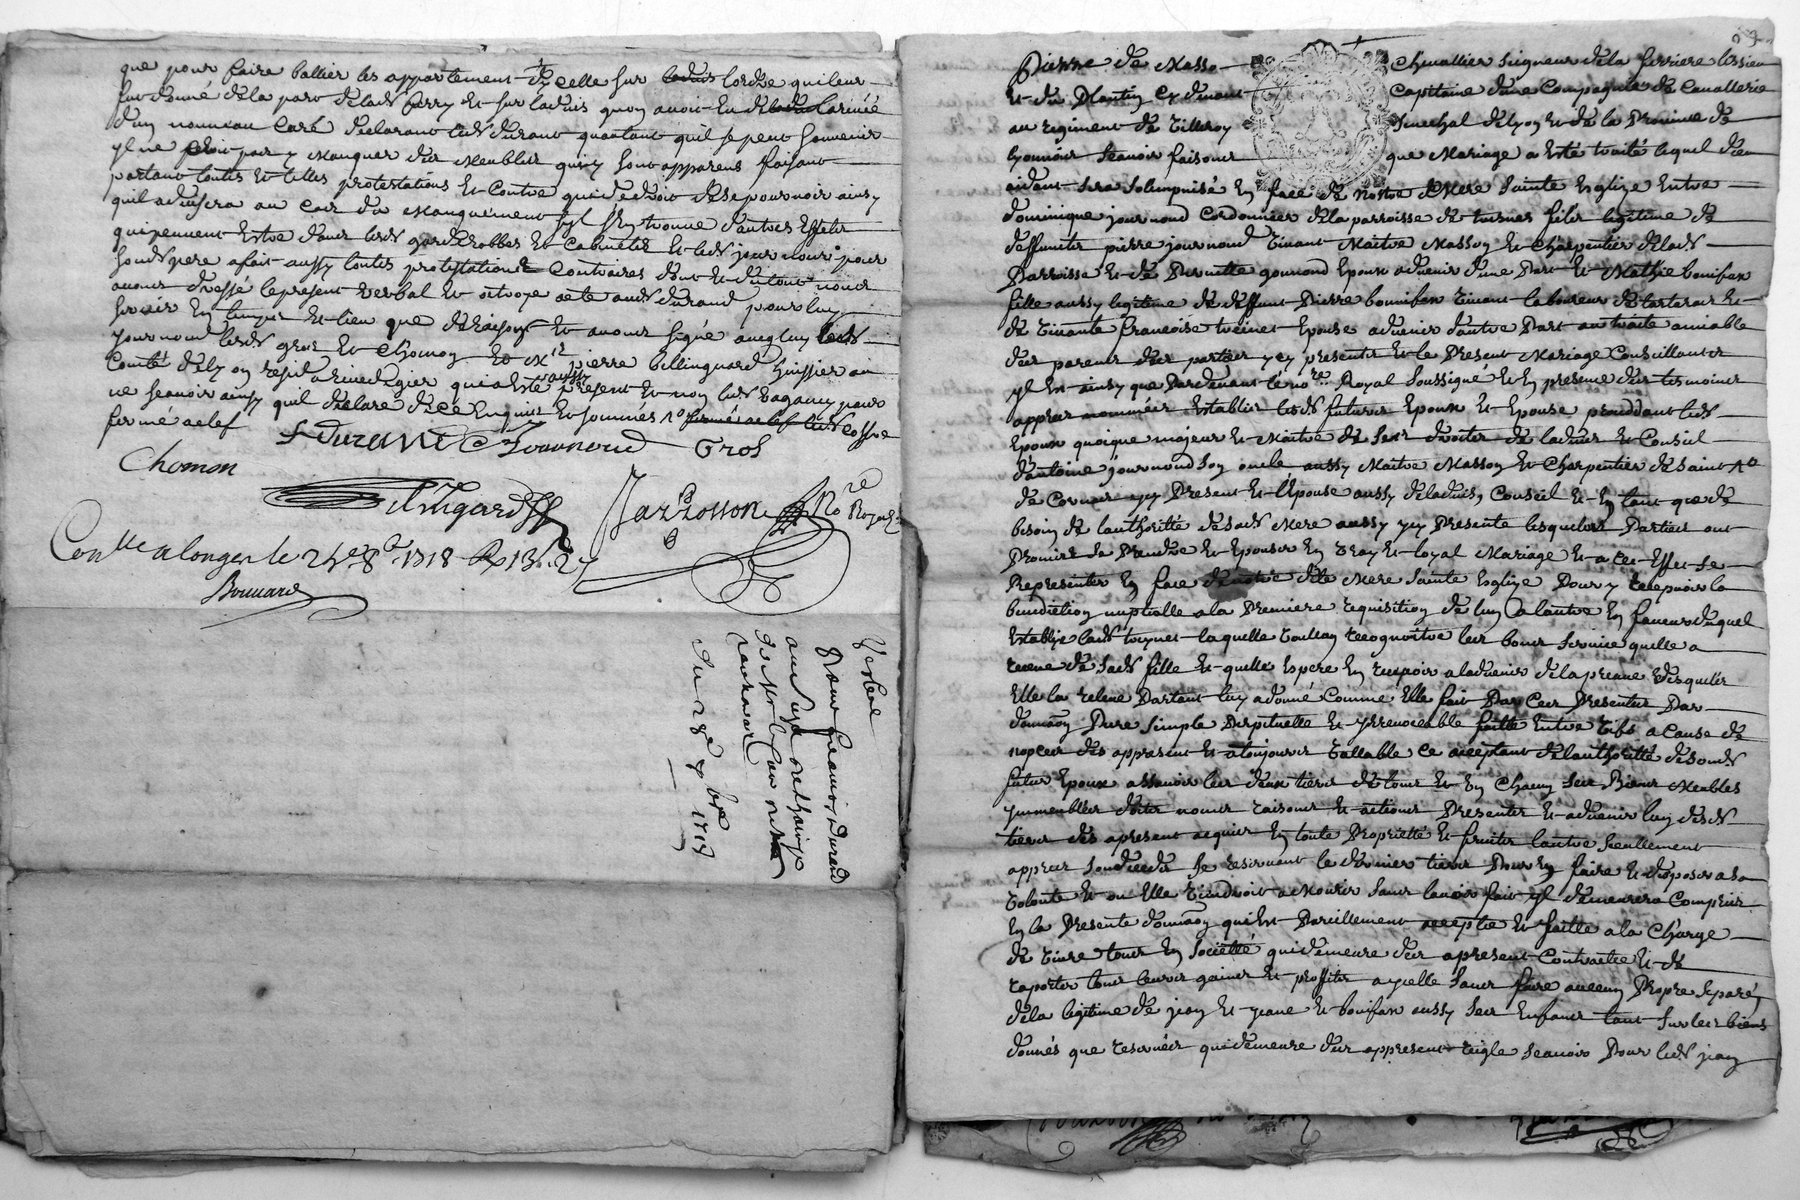 que pour faire ballier les appartement d'icelle sur lordre qui leur
fut donné de la part delad ferry et sur laduis quon auoit eu de larriuée
d'un nouveau Curé declarant led durant quautant quil se peut souuenir
yl ne peut pas y manquer des meubles qui y sont apparens faisant
partant toutes et telles protestations et Contre qui de droit de se pouruoir ainsy
quil aduisera au cas du manquement syl sen trouue d'autres effets
qui peuuent estre dans lesd garderobbes et Cabinets et led journoud pour
sond pere a fait aussy toutes protestations Contraires dont et du tout nous
auons dressé le present verbal et octroyé acte aud durand pour luy
seruir en temps et lieu que de raison et auons signé auec luy led
journoud lesd gros et Chomon et Mr pierre bellingard huissier au
Comté de lyon resid a riuedegier qui a esté aussy present et non led vaganay pour
ne scauoir ainsy quil declare de ce enquis et sommes
fermé a clef
Durand Journoud Gros
Chomon
Bellingard
Jarrosson No.re Royal
Con.lle a longes le 24e 8bre 1718
Bouuard
Verbal
pour francois durand
du 28e 7bre 1718
Pierre de Masso Cheuallier seigneur dela ferriere lissieu
et du Plantin Cy deuant Capitaine d'une Compagnie de Cauallerie
au regiment de Villeroy senechal de lyon et de la Prouince de
lyonnois scauoir faisons que Mariage a esté traité lequel dieu
aidant sera solempnisé en face de nostre de Mere sainte Esglize Entre
dominique journoud Cordonnier de la parroisse de tresues fils legitime de
deffuncts pierre journoud viuant Maitre Masson et Charpentier delad
Parroisse et de Pernette gonnond Epoux aduenir d'une Part et Mathie bonifax
fille aussy legitime de deffunt Pierre bonifax viuant laboureur de tartaras et
de viuante francoise treinet Epouse aduenir dautre Part au traité amiable
des parens des parties y cy presents et le Present Mariage Conseillants
yl est ainsy que Pardeuant le no.re Royal soussigné et en presence des tesmoins
appres nommés establis lesd futurs Epoux et Epouse procedant led
Epoux quoique majeur et Maitre de ses droits de laduis et Conseil
d'antoine journoud son oncle aussy Maitre Masson et Charpentier de saint
de Cornas ycy Present et lEpouse aussy de laduis, Conseil et en tant que de
besoin de lauthoritté de sad Mere aussy ycy Presente lesquelles Parties ont
Promis se Prendre et Epouser en vray et loyal Mariage et a ces effet se
Representer en face de nostre dite Mere sainte Esglize Pour y receuoir la
benediction nuptialle a la Premiere requisition de lun a lautre en faueur duquel
establie lad treynet laquelle voulant recognoitre les bons seruices quelle a
receus de sad fille et quelle espere en receuoir a laduenir dela preuue desquels
Elle la releue Partant luy a donné Comme Elle fait Par Ces Presentes Par
donnaon Pure simple Perpetuelle et yrreuocable faitte Entre vifs a cause de
nopces des appresent et a toujours vallable ce acceptant de lauthoritté de sond
futur Epoux assauoir les deux tiers de tous et un Chacun ses Biens Meubles
ymmeubles droits noms raisons et actions Presents et aduenir lun desd
tiers des apresent acquis en toute Propriette et fruits lautre seullement
appres son deceds se reseruant le dernier tiers Pour en faire et disposer a sa
volonté et ou Elle viendroit a Mourir sans lauoir fait yl demeurera Compris
en la Presente donnaon qui est Pareillement acceptée et faitte a la Charge
de viure tous en societté qui demeure des apresent Contractée et de
raporter tous leurs gains et proffits a ycelle sans faire aucun Propre separéz
dela legitime de jean et jeane et bonifax aussy ses Enfans tant sur les biens
donnés que reserués qui demeure des appresent reigle scauoir Pour led jean